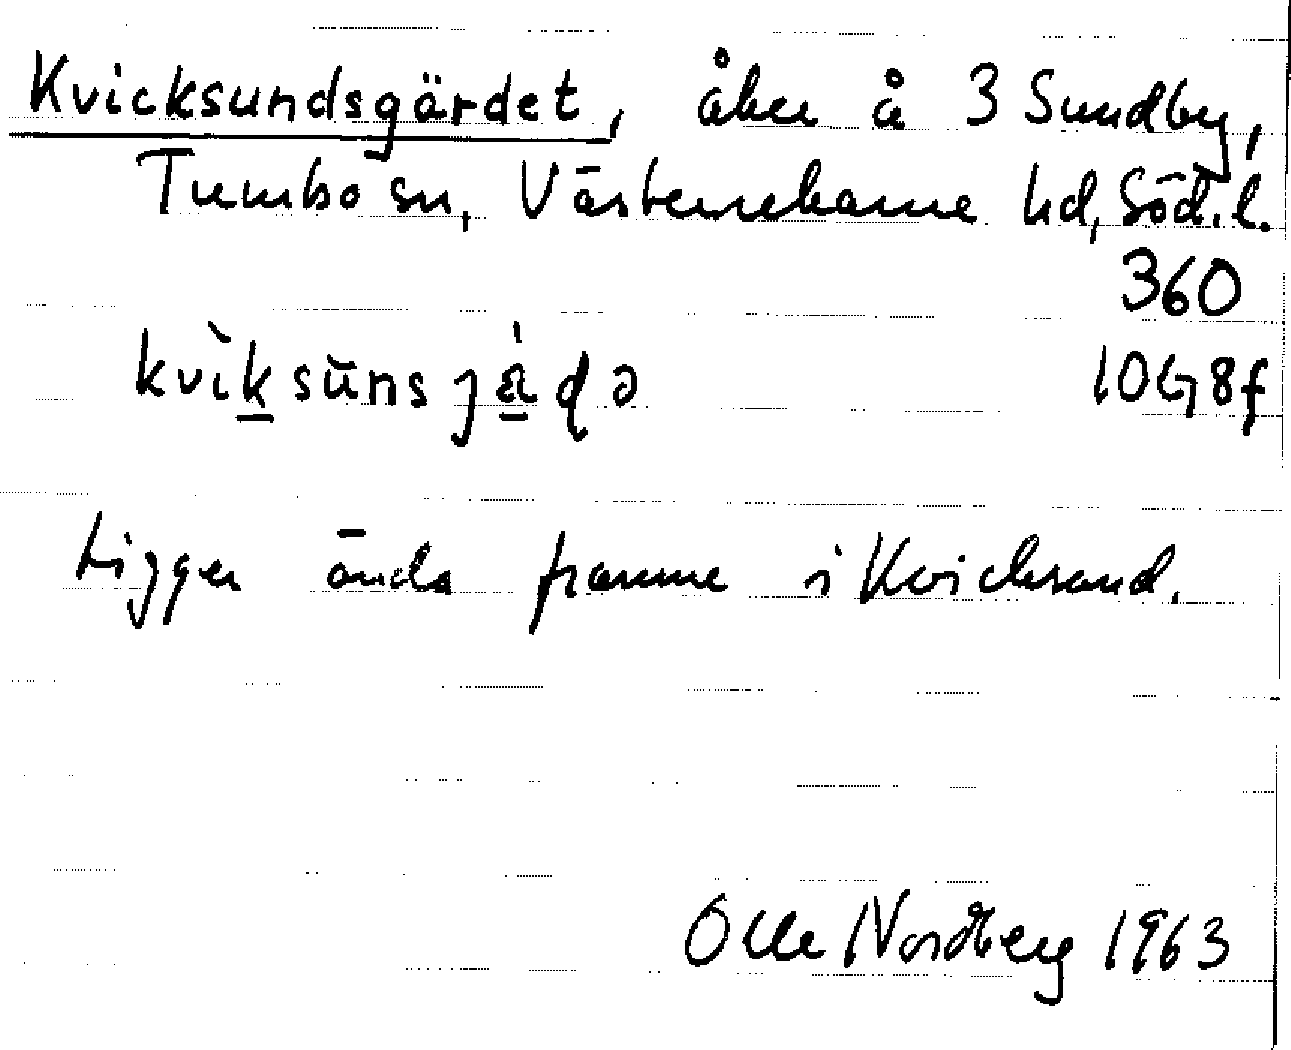 Kvicksundsgärdet, åker å 3 Sundby,
Tumbo sn, Västerrekarne hd, Söd. l.
360
kvìksŭnsjä̀ḍə
10G8f
Ligger ända framme i Kvicksund.
Olle Nordberg 1963